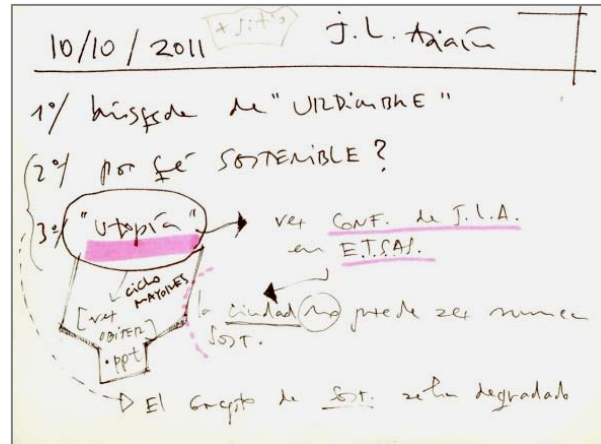 10/10/2011
J. L.
1º/ búsqueda de "URDIMBRE"
2º/ por qué SOSTENIBLE?
3º/ "utopía"
ver CONF. de J.L.A.
en E.T.S.A.S.
ciclo
MAYORES
[ver
]
.ppt
la ciudad no puede ser nunca
SOST.
El concepto de SOST. se ha degradado